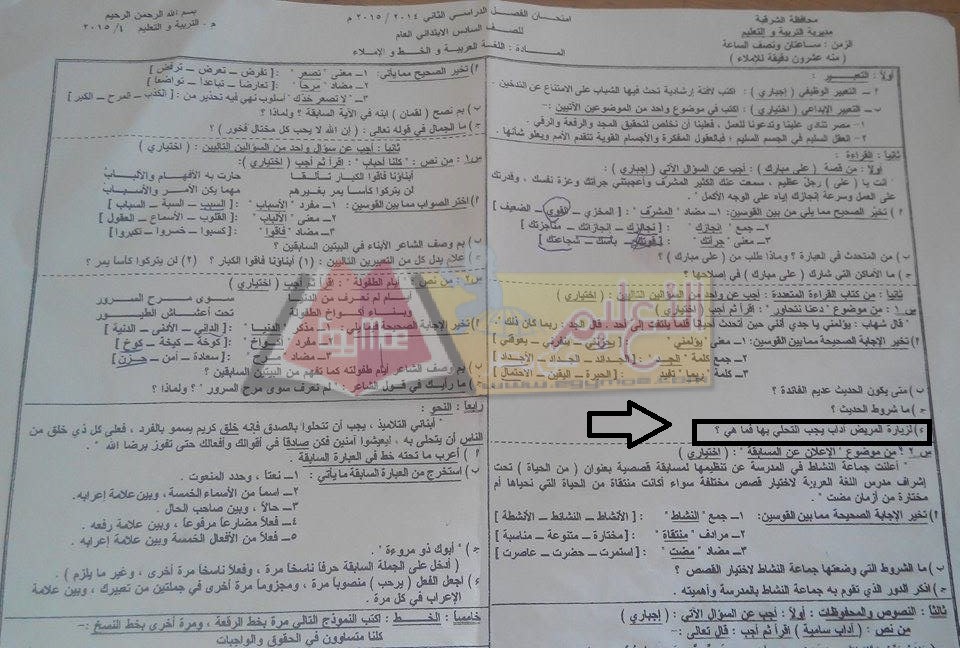 محافظة الشرقية
مديرية التربية و التعليم
الزمن : ساعتان ونصف الساعة
( منه عشرون دقيقة للإملاء )
امتحان الفصل الدراسي الثاني ٢٠١٤ / ٢٠١٥ م
للصف السادس الابتدائي العام
المـــادة : اللغة العربية و الخط و الإملاء
بسم الله الرحمن الرحيم
م . التربية و التعليم ٤ / ٢٠١٥
أولاً : التعبير :
أ – التعبير الوظيفي ( إجباري ) : اكتب لافتة إرشادية تحث فيها الشباب على الامتناع عن التدخين .
ب – التعبير الإبداعي ( اختياري ) : اكتب في موضوع واحد من الموضوعين الآتيين :
١- مصر تنادي علينا وتدعونا للعمل ، فعلينا أن نخلص لتحقيق المجد والرفعة والرقي .
٢- العقل السليم في الجسم السليم ؛ فبالعقول المفكرة والأجسام القوية تتقدم الأمم ويعلو شأنها .
ثانياً : القراءة :
أولاً : من قصة ( على مبارك ) : أجب عن السؤال الآتي ( إجباري ) :
" أنت يا ( على ) رجلٌ عظيم ، سمعت عنك الكثير المشرف وأعجبتني جرأتك وعزة نفسك ، وقدرتك
على العمل وسرعة إنجازك إياه على الوجه الأكمل "
أ ) تخيّر الصحيح مما يلي من بين القوسين: ١ـ مضاد " المشرف " : [ المخزي ـ القوى ـ الضعيف ]
٢ـ جمع " إنجازك " : [ نجازك ـ إنجازاتك ـ منجزتك ]
٣ـ معنى " جرأتك " : [ قوتك ـ بأسك ـ شجاعتك ]
ب ) من المتحدث في العبارة ؟ وماذا طلب من ( على مبارك ) ؟
ج ) ما الأماكن التي شارك ( على مبارك ) في إصلاحها ؟
ثانياً : من كتاب القراءة المتعددة : أجب عن واحد من السؤالين التاليين : ( اختياري )
س ١ : من موضوع " دعنا نتحاور " : اقرأ ثم أجب :
" قال شهاب : يؤلمني يا جدي أنني حين أتحدث أحياناً قلما يلتفت إلى أحد . قال الجد : ربما كان ذلك "
أ ) تخيّر الإجابة الصحيحة مما بين القوسين: ١ـ معنى " يؤلمني "
٢ـ جمع كلمة " الجد " : [ الجدائد ـ الجداد ـ الأجداد ]
٣ـ كلمة " ربما " تفيد : [ الحيرة ـ اليقين ـ الاحتمال ]
ب ) متى يكون الحديث عديم الفائدة ؟
ج ) ما شروط الحديث ؟
د ) لزيارة المريض آداب يجب التحلي بها فما هي ؟
س ٢ : من موضوع " الإعلان عن المسابقة " : ( اختياري )
" أعلنت جماعة النشاط في المدرسة عن تنظيمها لمسابقة قصصية بعنوان ( من الحياة ) تحت
إشراف مدرس اللغة العربية لاختيار قصص مختلفة سواء أكانت منتقاة من الحياة التي نحياها أم
مختارة من أزمان مضت " .
أ ) تخيّر الإجابة الصحيحة مما بين القوسين: ١ـ جمع " النشاط " : [ الأنشاط ـ النشائط ـ الأنشطة ]
٢ـ مرادف " منتقاة " : [ مختارة ـ متنوعة ـ مناسبة ]
٣ـ مضاد " مضت " : [ استمرت ـ حضرت ـ عاصرت ]
ب ) ما الشروط التي وضعتها جماعة النشاط لاختيار القصص ؟
ج ) اذكر الدور الذي تقوم به جماعة النشاط بالمدرسة وأهميته .
ثالثاً : النصوص والمحفوظات : أولاً : أجب عن السؤال الآتي : ( إجباري )
من نص : ( آداب سامية ) اقرأ ثم أجب : قال تعالى :ـ
أ ) تخيّر الصحيح مما يأتى: ١ـ معنى " تصعر " : [ تفرض ـ تعرض ـ ترفض ]
٢ـ مضاد " مرحاً " : [ تعارضاً ـ تباعداً ـ تواضعاً ]
٣ـ " لا تصعر خدك " أسلوب نهي فيه تحذير من : [ الكذب ـ المرح ـ الكبر ]
ب ) بم نصح ( لقمان ) ابنه في الآية السابقة ؟ ولماذا ؟
ج ) ما الجمال في قوله تعالى : ( إن الله لا يحب كل مختال فخور ) ؟
ثانياً : أجب عن سؤال واحد من السؤالين التاليين : ( اختياري )
س١ : من نص : " كلنا أحباب " : اقرأ ثم أجب ( اختياري ) :
أبناؤنا فاقوا الكبار تـألـقـا حارت به الأفهام والألبابُ
لن يتركوا كأسا يمر بغيرهم مهما يكن الأمـر والأسـباب
أ ) اختر الصواب مما بين القوسين: ١ـ مفرد " الأسباب " : [ السبب ـ السبة ـ السباب ]
٢ـ معنى " الألباب " : [ القلوب ـ الأسماع ـ العقول ]
٣ـ مضاد " فاقوا " : [ كسبوا ـ خسروا ـ تكبروا ]
ب ) بم وصف الشاعر الأبناء في البيتين السابقين ؟
ج ) علام يدل كل من التعبيرين التاليين : (١) أبناؤنا فاقوا الكبار ؟ (٢) لن يتركوا كأساً يمر ؟
س٢ : من نص : " أيام الطفولة " : اقرأ ثم أجب ( اختياري )
أيام لم تعرف من الدنيا سوى مـرح السرور
وبنـاء أكـواخ الطفولة تحت أعـشاش الطيـور
تخير الإجابة الصحيحة مما يلي : مذكر " الدنيا " : [ الداني ـ الأدنى ـ الدنية ]
٢ـ مفرد " أكـواخ " : [ كوخة ـ كيخة ـ كوخ ]
٣ـ مضاد " مـرح " : [ سعادة ـ أمن ـ حزن ]
ب ) بم وصف الشاعر أيام طفولته كما تفهم من البيتين السابقين ؟
ج ) ما رأيك في قول الشاعر " لم تعرف سوى مرح السرور " ؟ ولماذا ؟
رابعاً : النحو :
" أبنائي التلاميذ ، يجب أن تتحلوا بالصدق فإنه خلق كريم يسمو بالفرد ، فعلى كل ذي خلق من
الناس أن يتحلى به ، لنعيشوا آمنين فكن صادقا في أقوالك وأفعالك حتى تفوز برضا الله " .
أ ) أعرب ما تحته خط في العبارة السابقة .
ب ) استخرج من العبارة السابقة ما يأتي : ١ـ نعتاً ، وحدد المنعوت .
٢ـ اسماً من الأسماء الخمسة ، وبين علامة إعرابه .
٣ـ حالاً ، وبين صاحب الحال .
٤ـ فعلاً مضارعاً مرفوعاً ، وبين علامة رفعه .
٥ـ فعلاً من الأفعال الخمسة وبين علامة إعرابه .
ج ) " أبوك ذو مروءة " .
( أدخل على الجملة السابقة حرفاً ناسخاً مرة ، وفعلاً ناسخاً مرة أخرى ، وغير ما يلزم ) .
د ) اجعل الفعل ( يرحب ) منصوباً مرة ، ومجزوماً مرة أخرى في جملتين من تعبيرك ، وبين علامة
الإعراب في كل مرة .
خامساً : الخط : اكتب النموذج التالي مرة بخط الرقعة ، ومرة أخرى بخط النسخ :ـ
كلنا متساوون في الحقوق والواجبات
www.egymoe.com